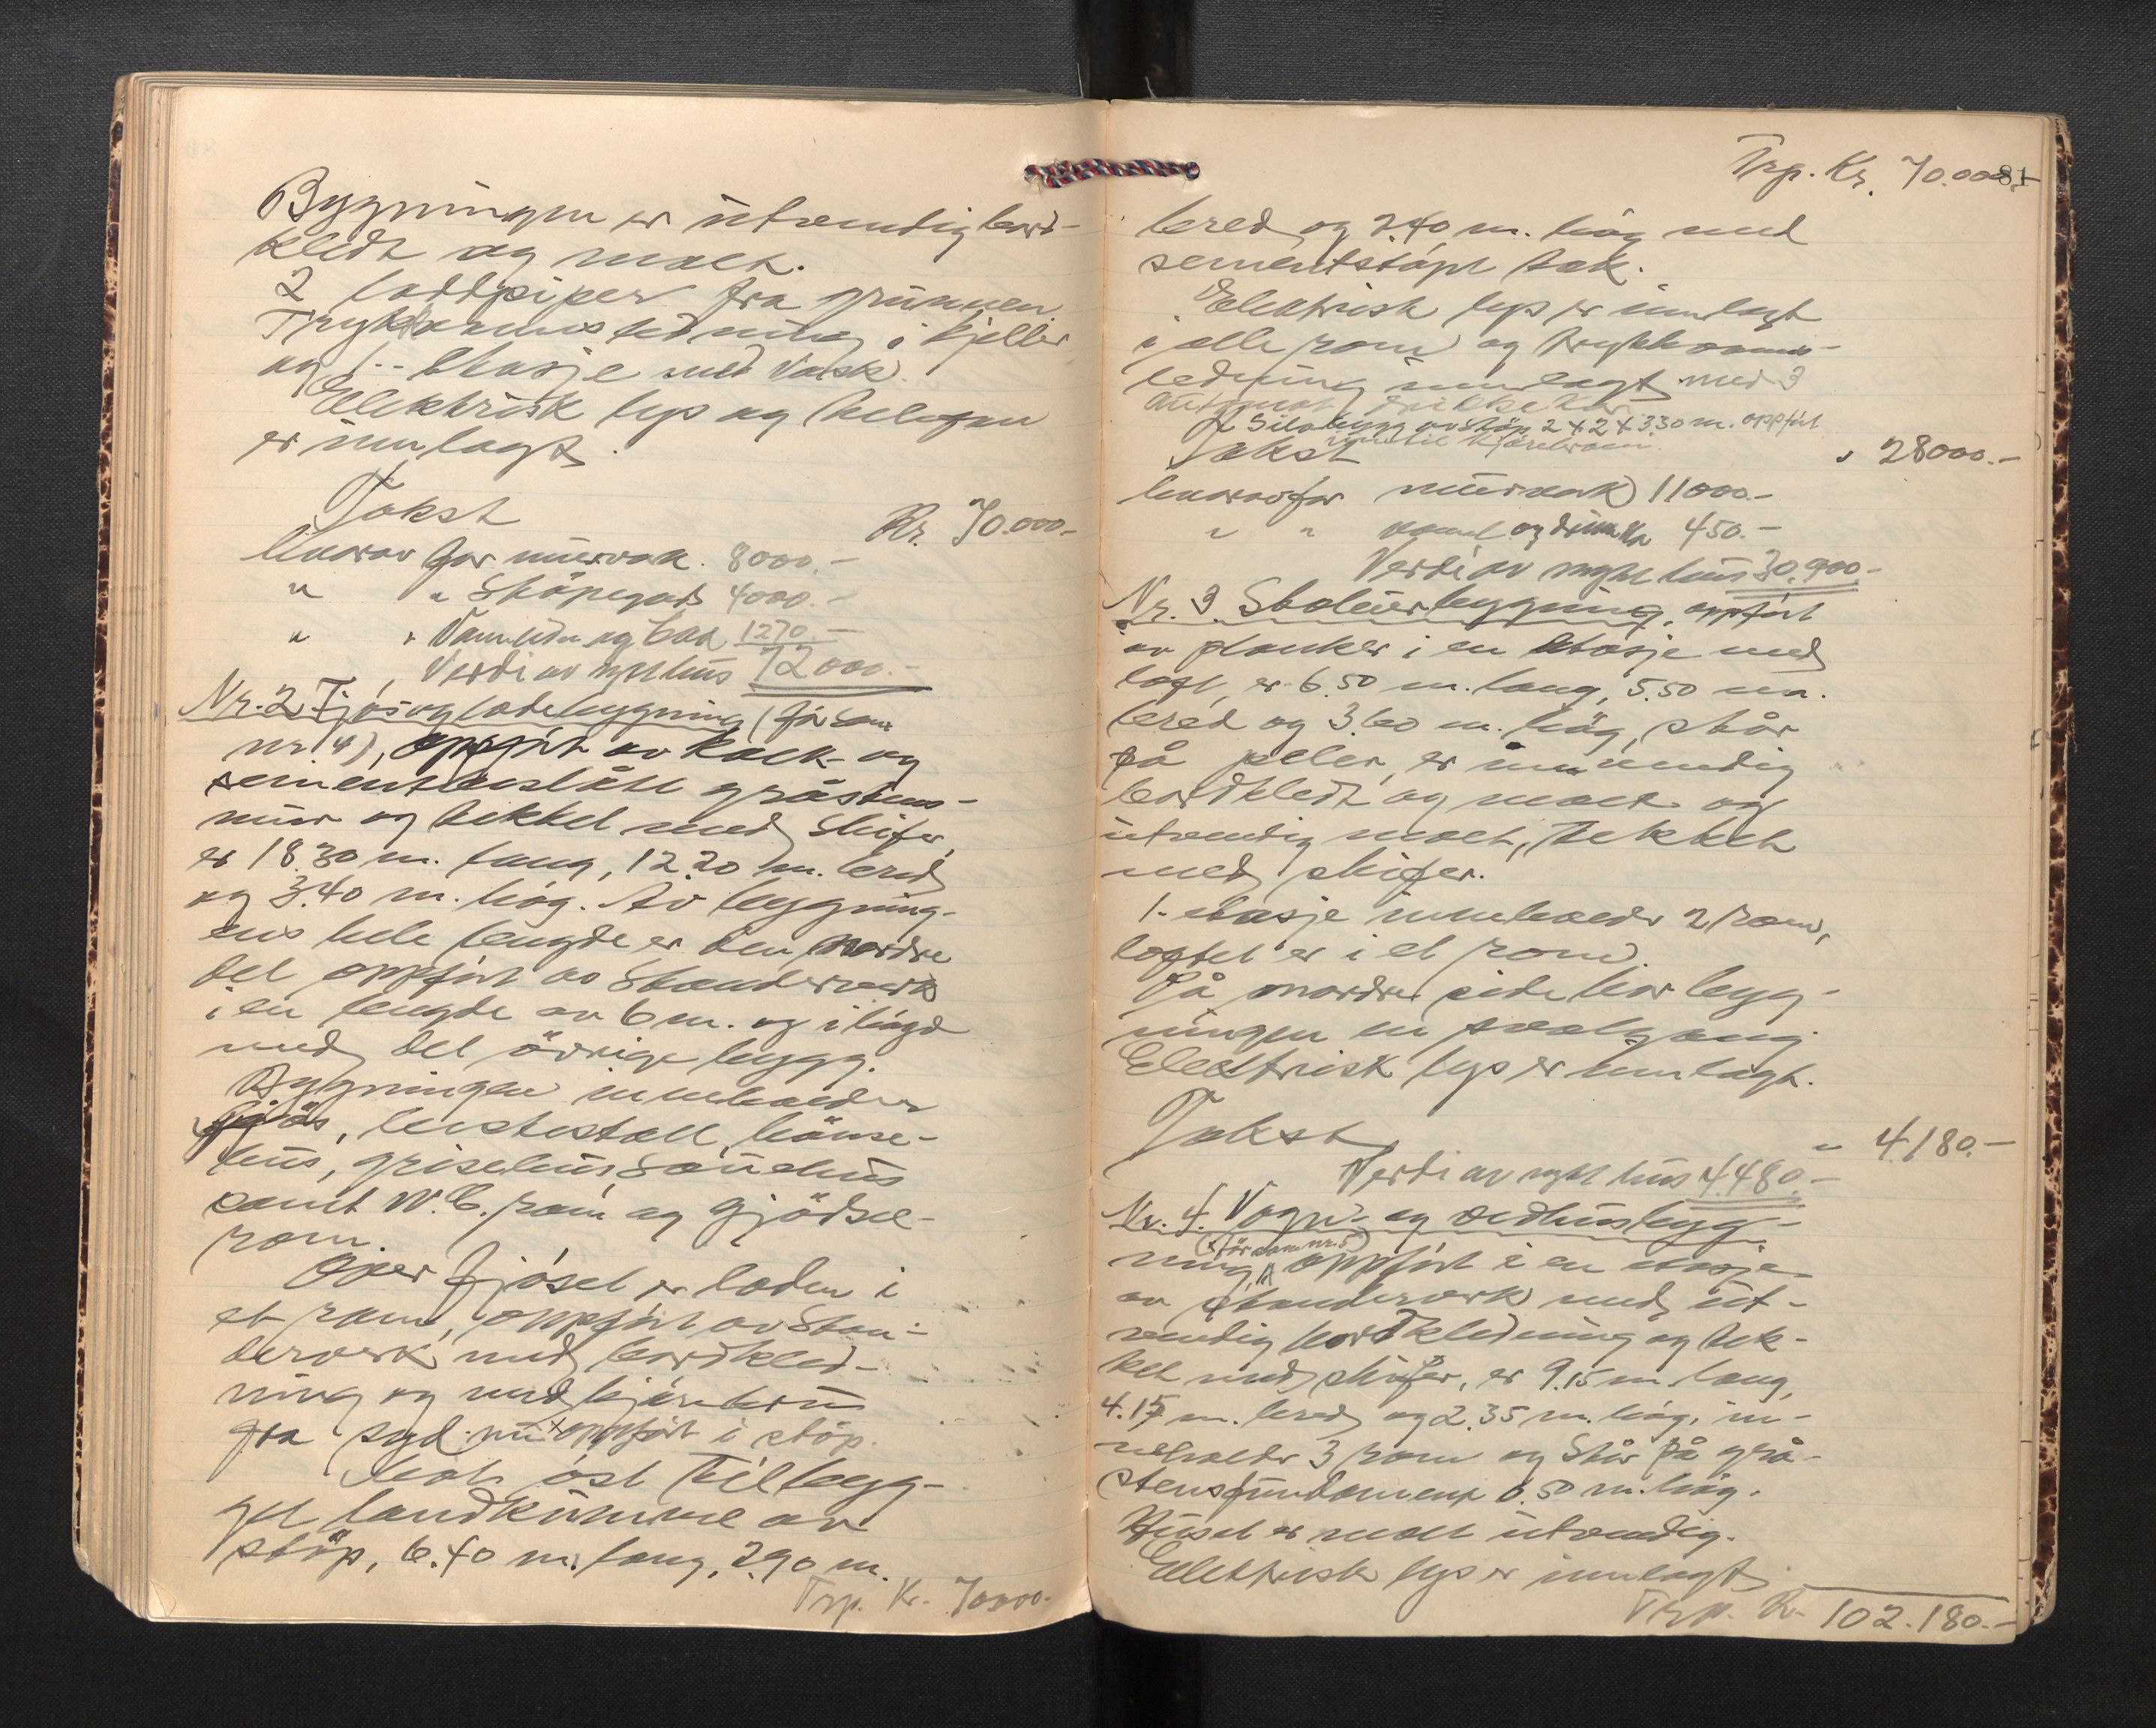 Bygningen er utvendig bord-
kledt og malt.
2 loddpiper fra grunnen.
Trykkvannsledning i kjeller
og 1. etasje med vask.
Elektrisk lys og telefon
er innlagt.
Takst Kr. 70.000.-
hvorav for murverk. 8000.-
" " Støpegods 4000.-
" " Vannledn og bad 1270.-
Verdi av nytt hus 72000.-
Nr. 2 Fjøs og ladebygning (før som
nr. 4), oppført av kalk- og
sementbeslått gråstens-
mur og tekket med skifer,
er 18.30 m. lang, 12.20 m. bred
og 3.40 m. høg. Av bygning-
ens hele lengde er den nordre
del oppført av Standerverk
i en lengde av 6 m. og i høgd
med det övrige bygg.
Bygningen inneholder
fjøs, hestestall, hönse-
hus, grisehus, Sauehus
samt W.C. rom og gjödsel-
rom.
Over fjøset er laden i
et rom, oppført av Stan-
derverk med bordkled-
ning og med kjørebru
fra syd. nu oppført i støp.
Mot øst tilbyg-
get landkumme av
støp, 6.40 m. lang, 2.90 m.
Trp. Kr. 70000.-
Trp. Kr. 70.000.-
81
bred og 2.40 m. høg med
sementstøpt tak.
Elektrisk lys er innlagt
i alle rom og trykkvanns-
ledning innlagt med 3
automat drikkekar.
Silobygg av støp 2 x 2 x 3.30 m. oppført
inntil kjørebroen.
Takst " 28000.-
hvorav for murverk 11000.-
" " vannl og drikkekar 450.-
Verdi av nytt hus 30.900.-
Nr. 3. Stabursbygning, oppført
av planker i en etasje med
loft, er 6.50 m. lang, 5.50 m.
bred og 3.60 m. høg, står
på peler, er innvendig
bordkledt og malt og
utvendig malt, tekket
med skifer.
1. etasje inneholder 2 rom,
loftet er i et rom.
På nordre side har byg-
ningen en svalgang.
Elektrisk lys er innlagt.
Takst " 4180.-
Verdi av nytt hus 4480.-
Nr. 4. Vogn- og vedhusbyg-
(før som nr. 5)
ning, oppført i en etasje
av standerverk med ut-
vendig bordkledning og tek-
ket med skifer, er 9.15 m lang,
4.15 m. bred og 2.35 m. høg, in-
neholder 3 rom og står på grå-
stensfundament 0.50 m. høg.
Huset er malt utvendig.
Elektrisk lys er innlagt.
Trp. Kr. 102.180.-